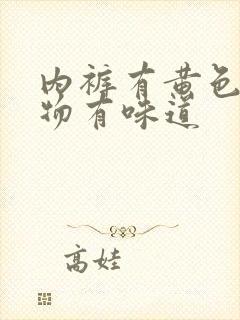 内裤有黄色
物有味道
高娃